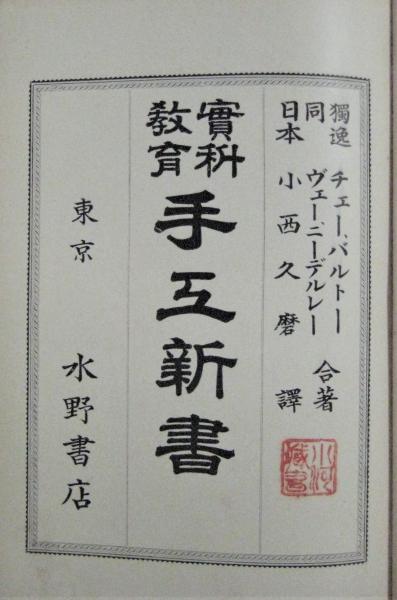 獨逸 チェー、バルトー
同 ヴェー、ニーデルレー 合著
日本 小西久磨 譯
實科教育
手工新書
東京 水野書店